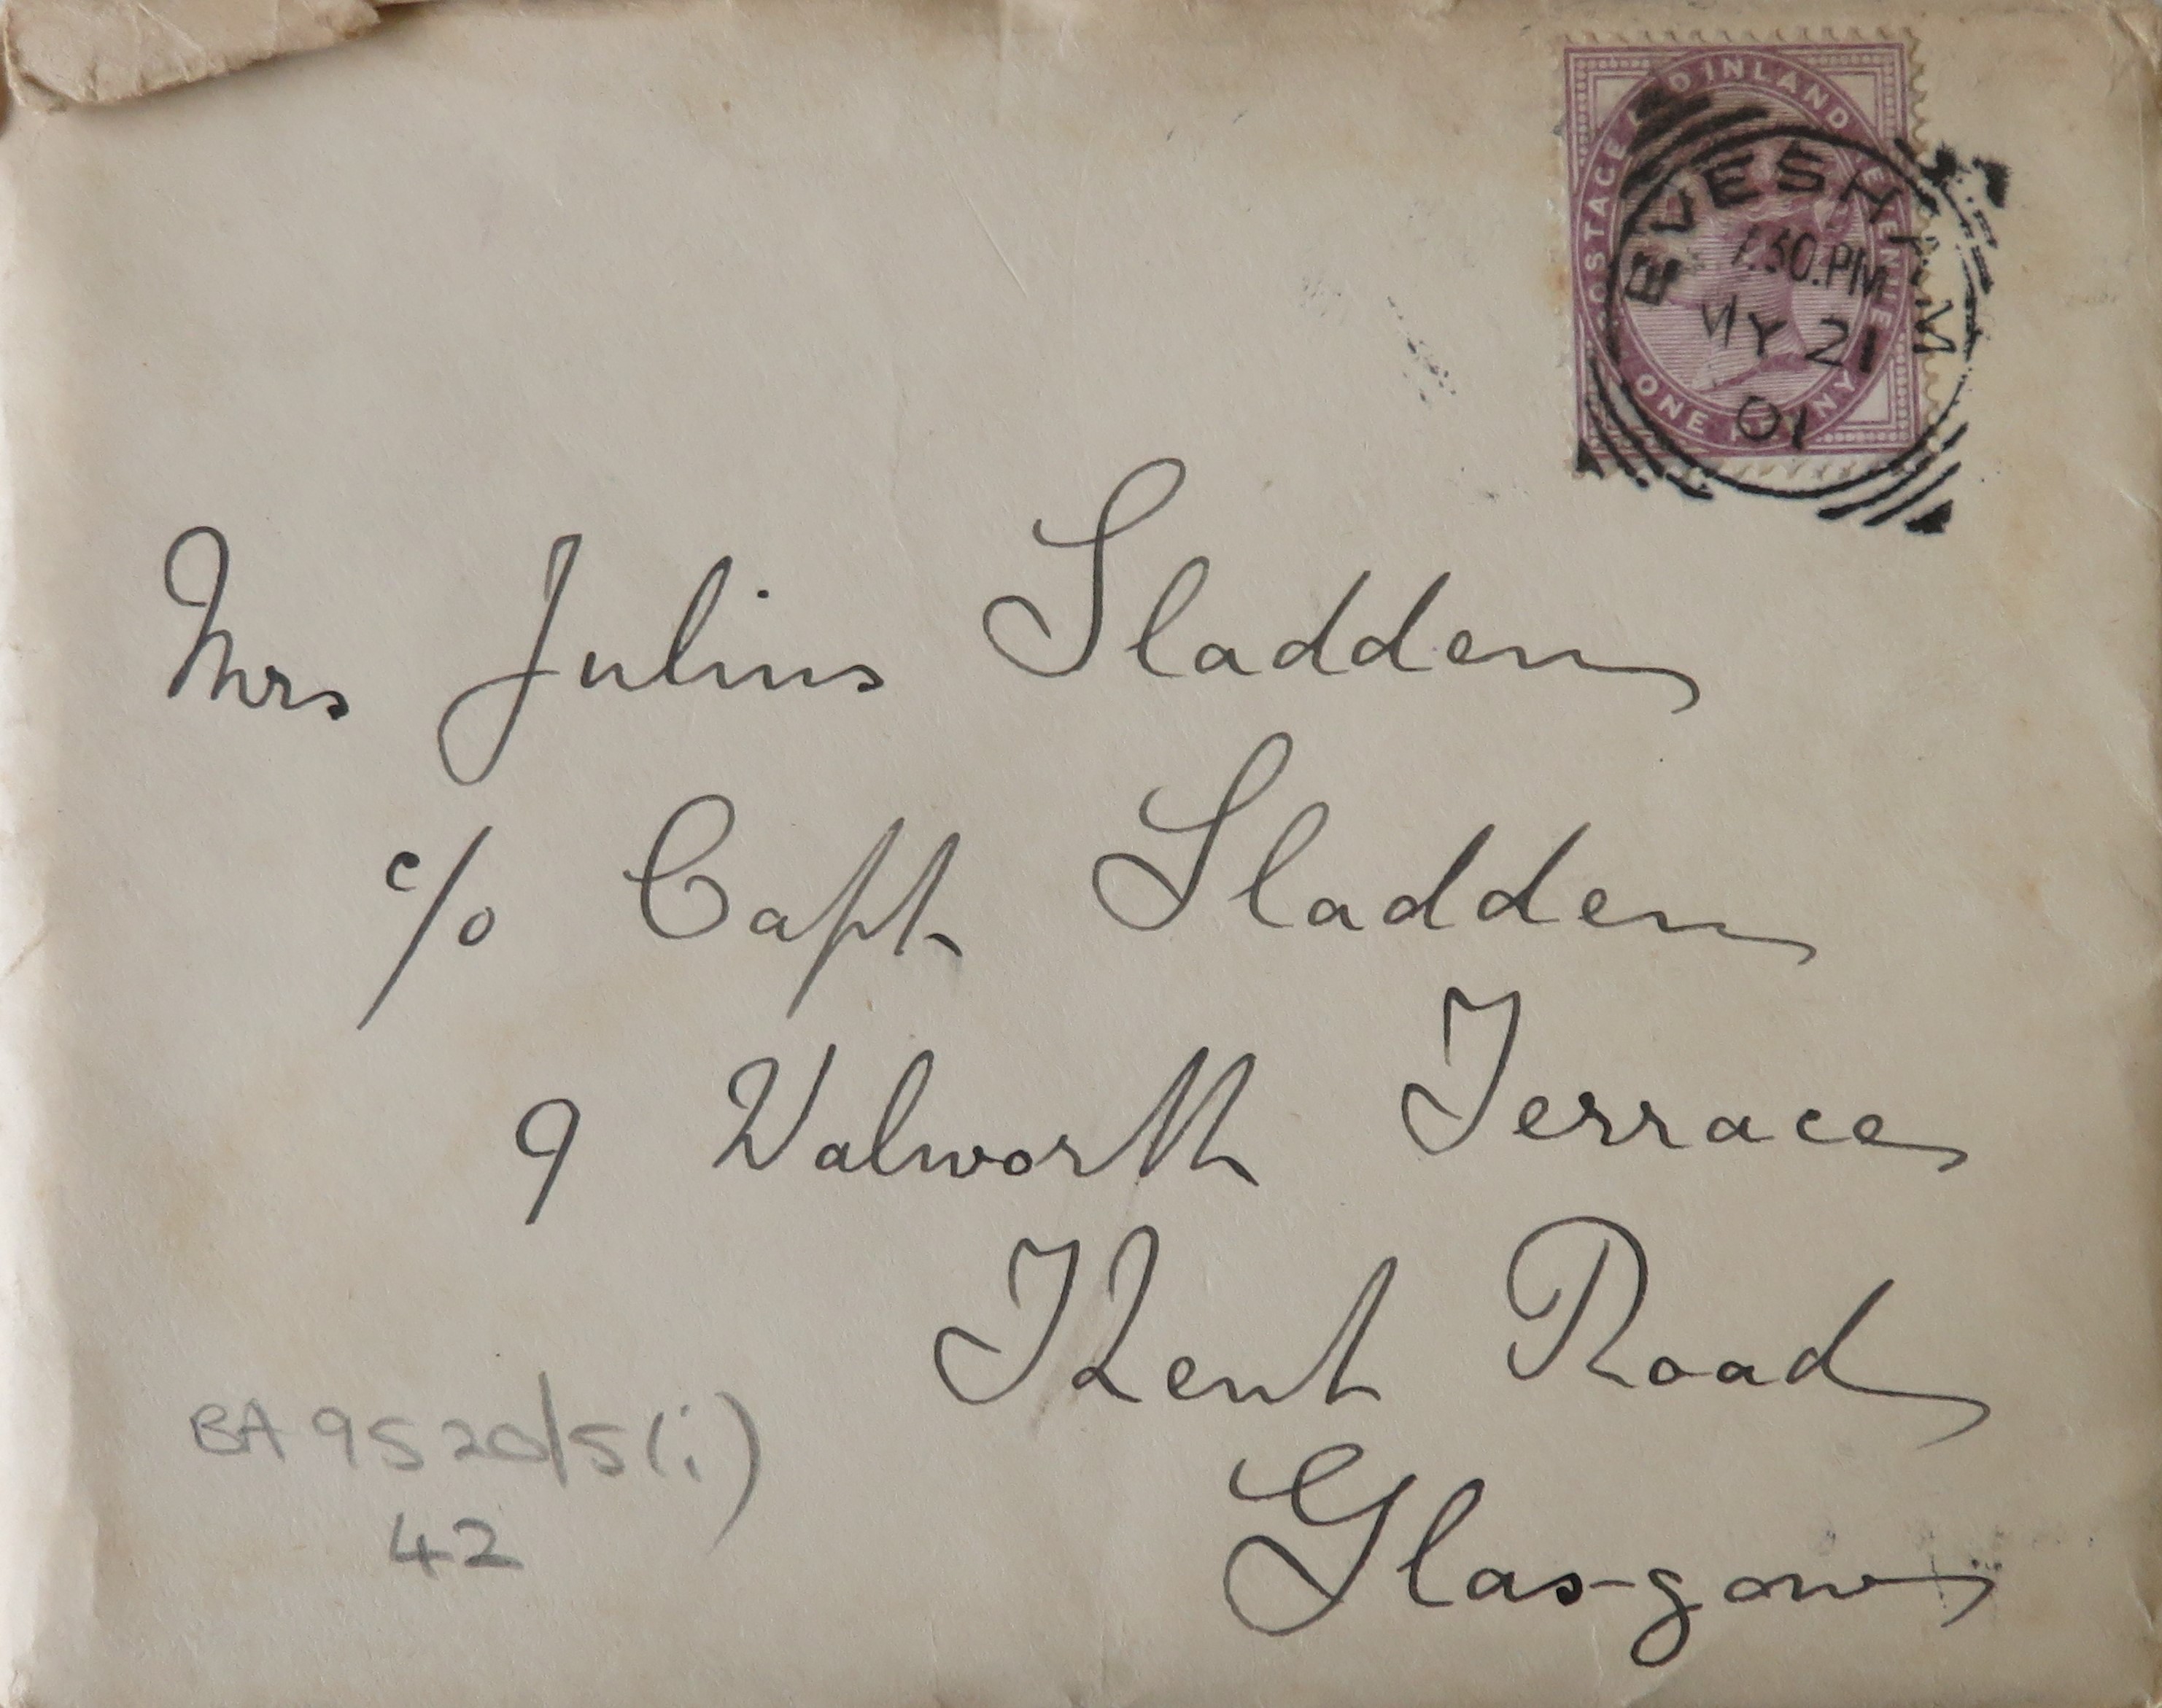 POSTAGE AND INLAND REVENUE
ONE PENNY
EVESHAM
7.30.PM
MY 21
01
Mrs Julius Sladden
c/o Capt Sladden
9 Walworth Terrace
Kent Road
Glasgow
BA 9520/5(i)
42